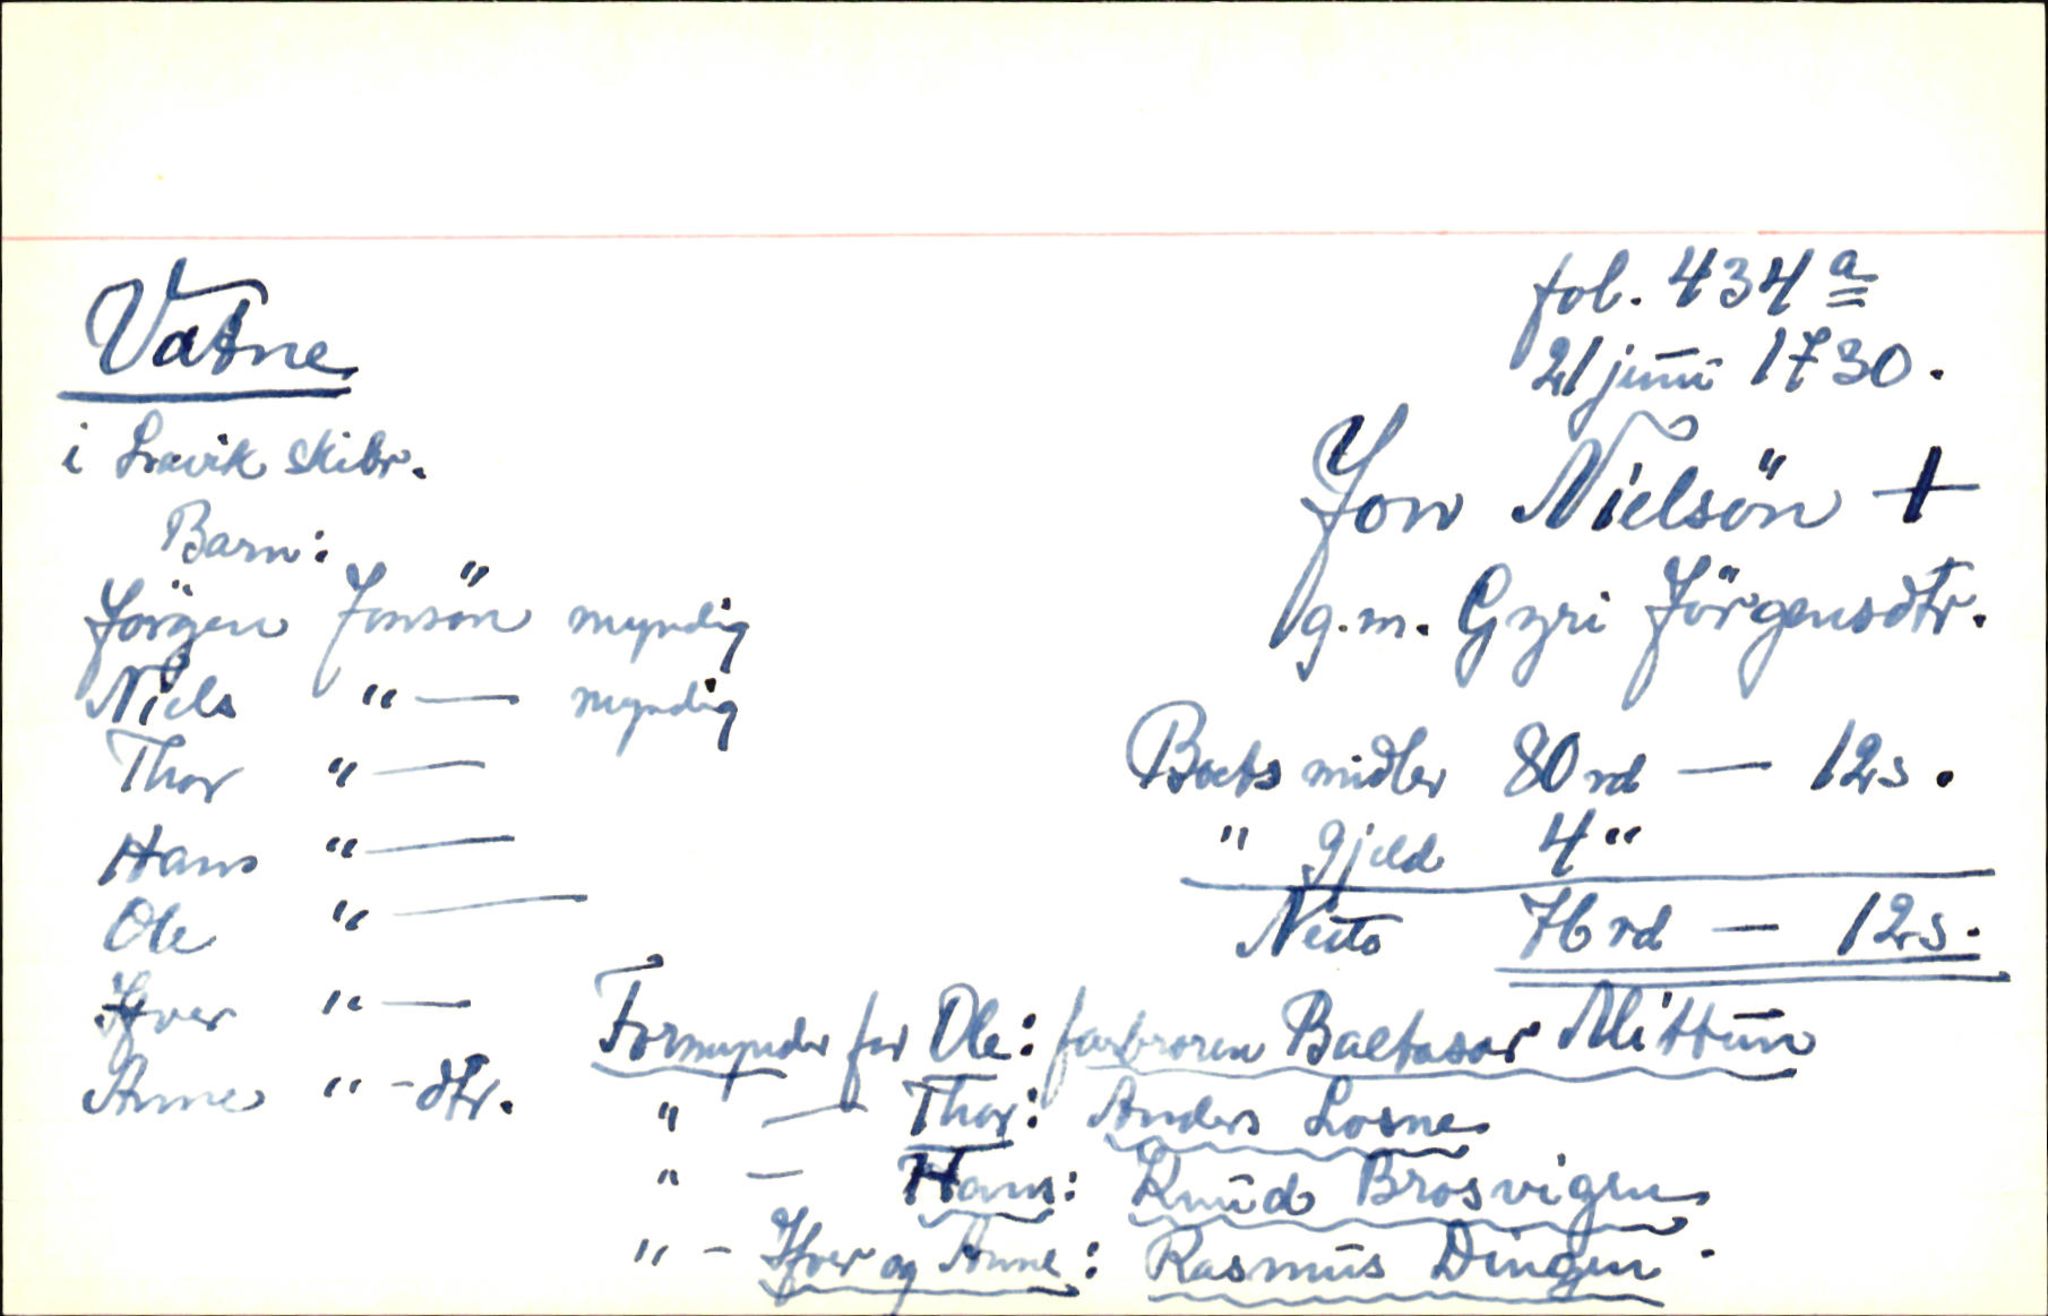 Vatne
i Lavik skibr.
fol. 434 a
21 juni 1730.
Jon Nielsön +
g.m. Gyri Jörgensdtr.
Barn:
Jörgen Jonsön myndig
Niels "— myndig
Thor "—
Hans "—
Ole "—
Ifver "—
Anne " -dtr.
Boets midler 80 rd — 12 s.
" gjeld 4 "
Netto 76 rd — 12 s.
Formynder for Ole: farbroren Baltasar Mittun
" — Thor: Anders Losne
" — Hans: Knud Brosvigen
" - Ifver og Anne: Rasmus Dingen.